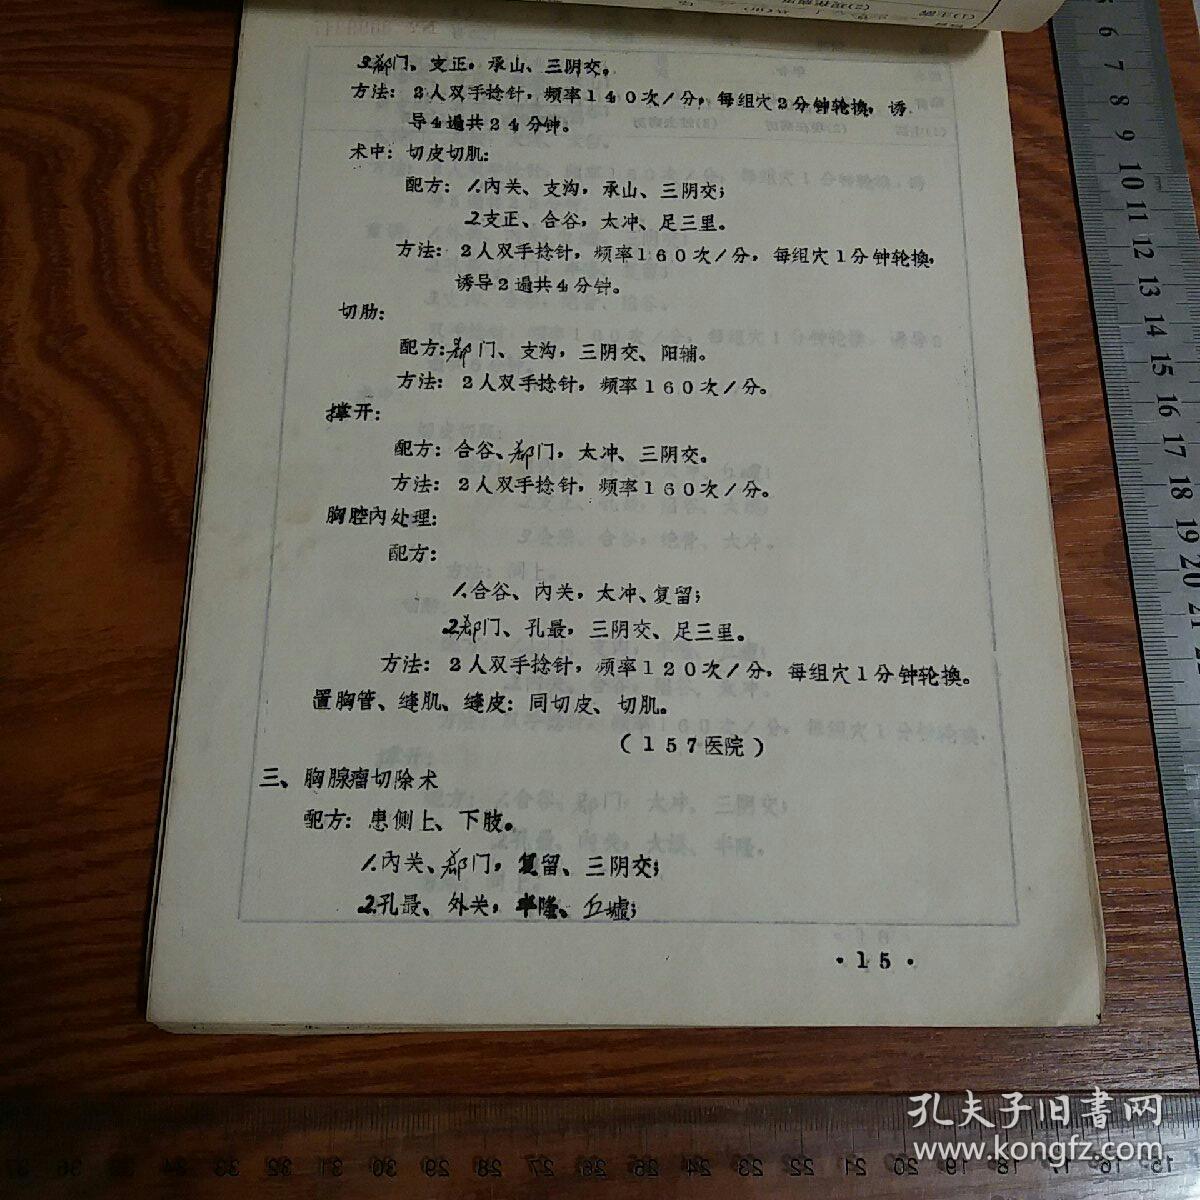 3.郄门、支正，承山、三阴交。
方法：2人双手捻针，频率140次/分，每组穴2分钟轮换，诱
导4遍共24分钟。
术中：切皮切肌：
配方：1.內关、支沟，承山、三阴交；
2.支正、合谷，太冲、足三里。
方法：2人双手捻针，频率160次/分，每组穴1分钟轮换，
诱导2遍共4分钟。
切肋：
配方：郄门、支沟，三阴交、阳辅。
方法：2人双手捻针，频率160次/分。
撑开：
配方：合谷、郄门，太冲、三阴交。
方法：2人双手捻针，频率160次/分。
胸腔內处理：
配方：
1.合谷、內关，太冲、复留；
2.郄门、孔最，三阴交、足三里。
方法：2人双手捻针，频率120次/分，每组穴1分钟轮换。
置胸管、缝肌、缝皮：同切皮、切肌。
（157医院）
三、胸腺瘤切除术
配方：患侧上、下肢。
1.內关、郄门，复留、三阴交；
2.孔最、外关，丰隆、丘墟；
·15·
孔夫子旧书网
www.kongfz.com